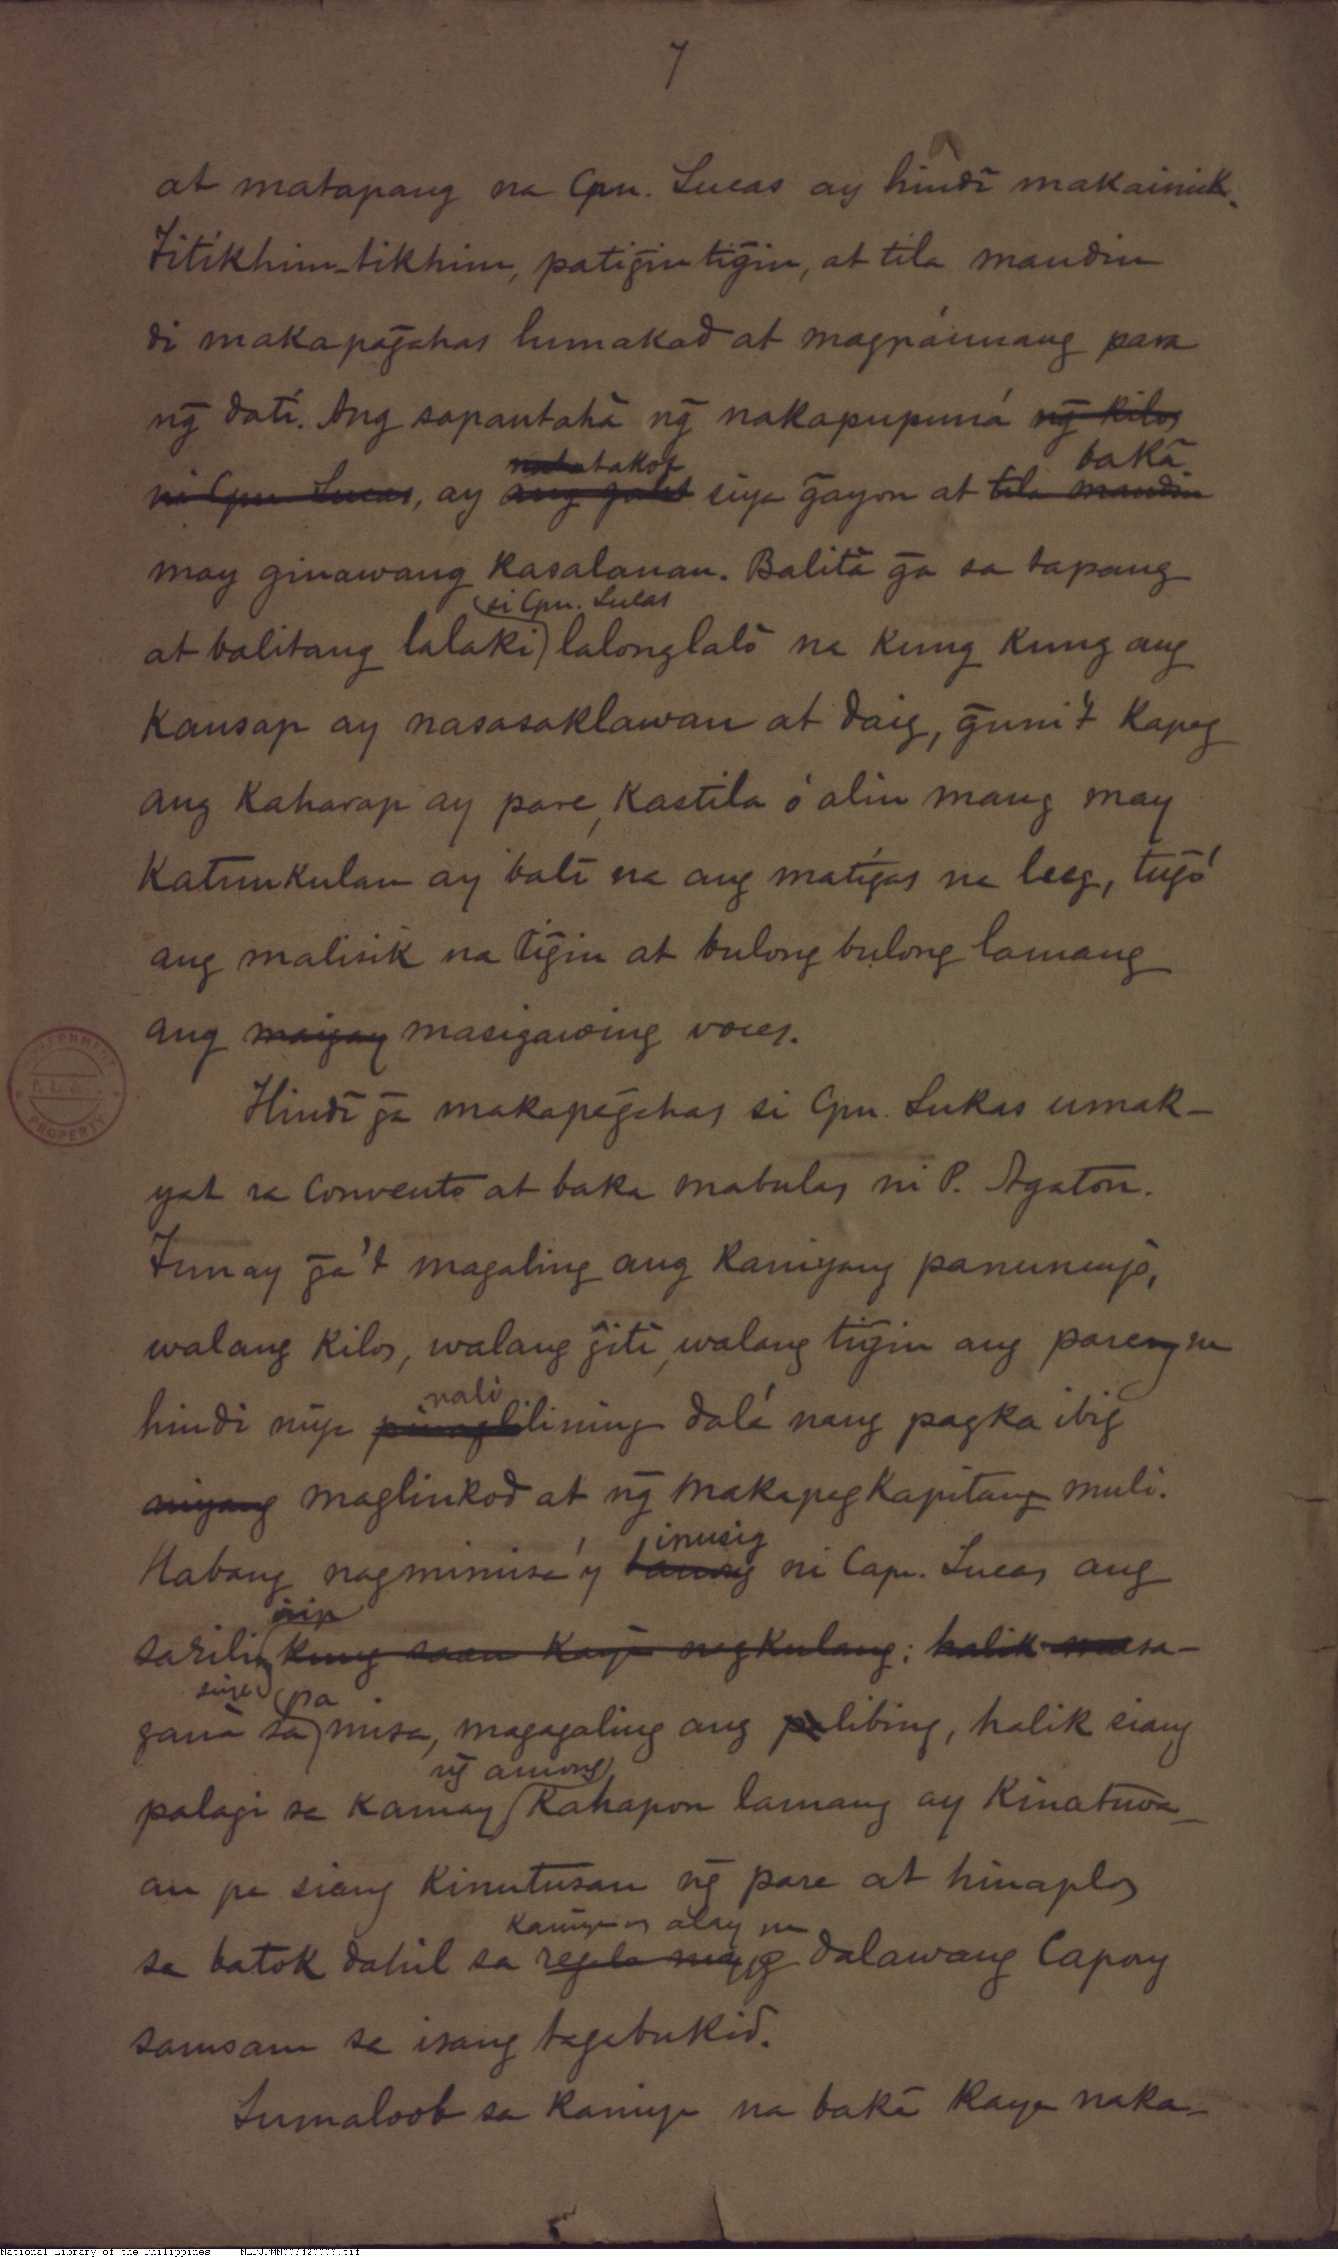 7
at matapang na Cpn. Lucas ay hindî makaimik.
Titikhim-tikhim, patig̃in tig̃in, at tila mandin
di makapag̃ahas lumakad at magpáunang para
ng̃ dati. Ang sapantahà ng̃ nakapupuná ng̃ kilos
natatakot bakâ
ni Cpn Lucas, ay ang galit siya g̃ayon at tila mandin
may ginawang kasalanan. Balità g̃a sa tapang
si Cpn. Lucas
at balitang lalaki lalonglalò na kung kung ang
kausap ay nasasaklawan at daig, g̃uni't kapag
ang kaharap ay pare, kastila ó alin mang may
katunkulan ay balî na ang matigas na leeg, tug̃ó
ang malisik na tig̃in at bulong bulong lamang
ang maigay masigawing voces.
Hindî g̃a makapag̃ahas si Cpn. Lukas umak-
yat sa convento at baka mabulas ni P. Agaton.
Tunay g̃a't magaling ang kaniyang panunuyò,
walang kilos, walang g̃itî, walang tig̃in ang pareng na
nali
hindi niya lining dalá nang pagka ibig
niyang maglinkod at ng̃ makapagkapitang muli.
inusig
Habang nagmimisa'y ni Cap. Lucas ang
isip
sarili kung saan kaya nagkulang; halik masa-
siya pa
ganà sa misa, magagaling ang libing, halik siang
ng̃ among
palagi sa kamay Kahapon lamang ay kinatuwa-
an pa siang kinutusan ng̃ pare at hinaplos
kaniyang alay na
sa batok dahil sa regalo niyang dalawang Capong
samsam sa isang tagabukid.
Sumaloob sa kaniya na bakâ kaya naka-
GOVERNMENT
PROPERTY
National Library of the Philippines